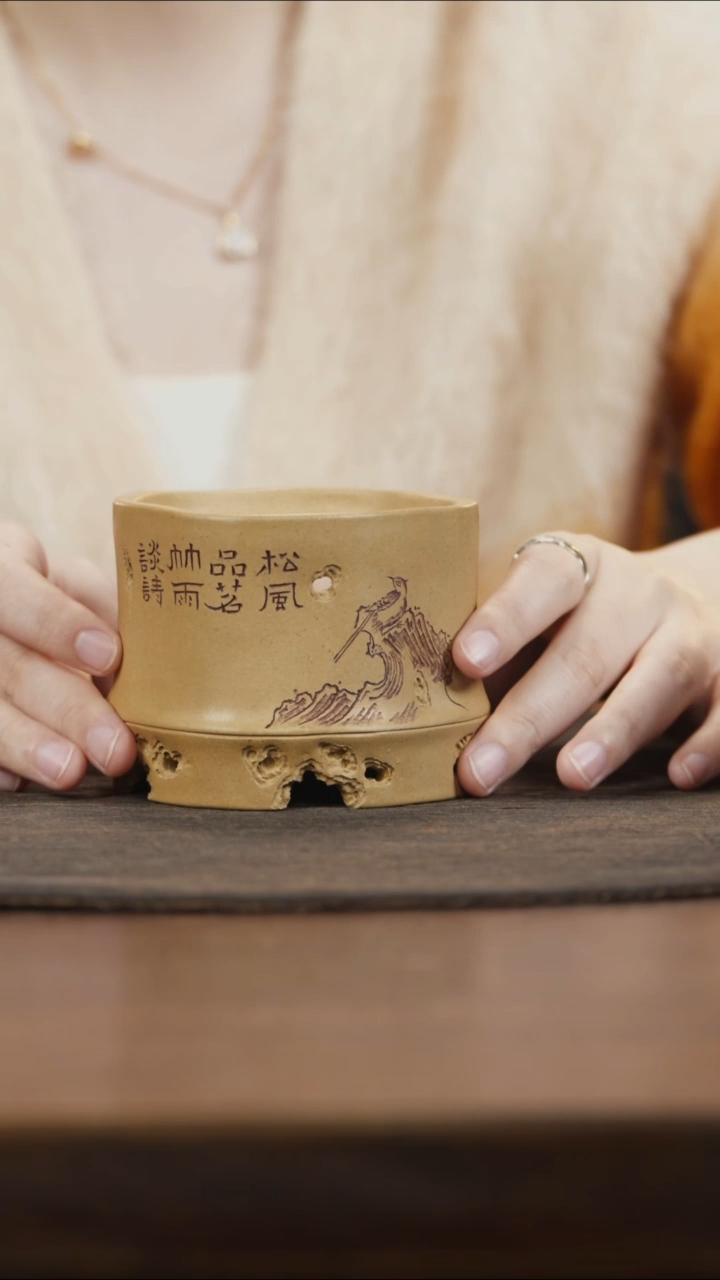 松風
品茗
竹雨
談詩